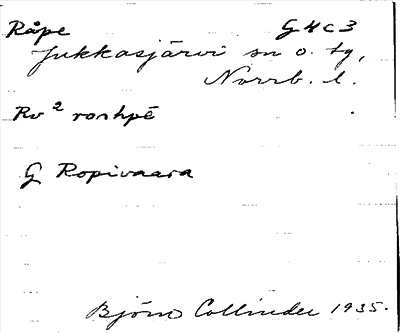 Råpe G4c3
Jukkasjärvi sn o. tg,
Norrb. l.
Rv² ronhpē
G Ropivaara
Björn Collinder 1935.